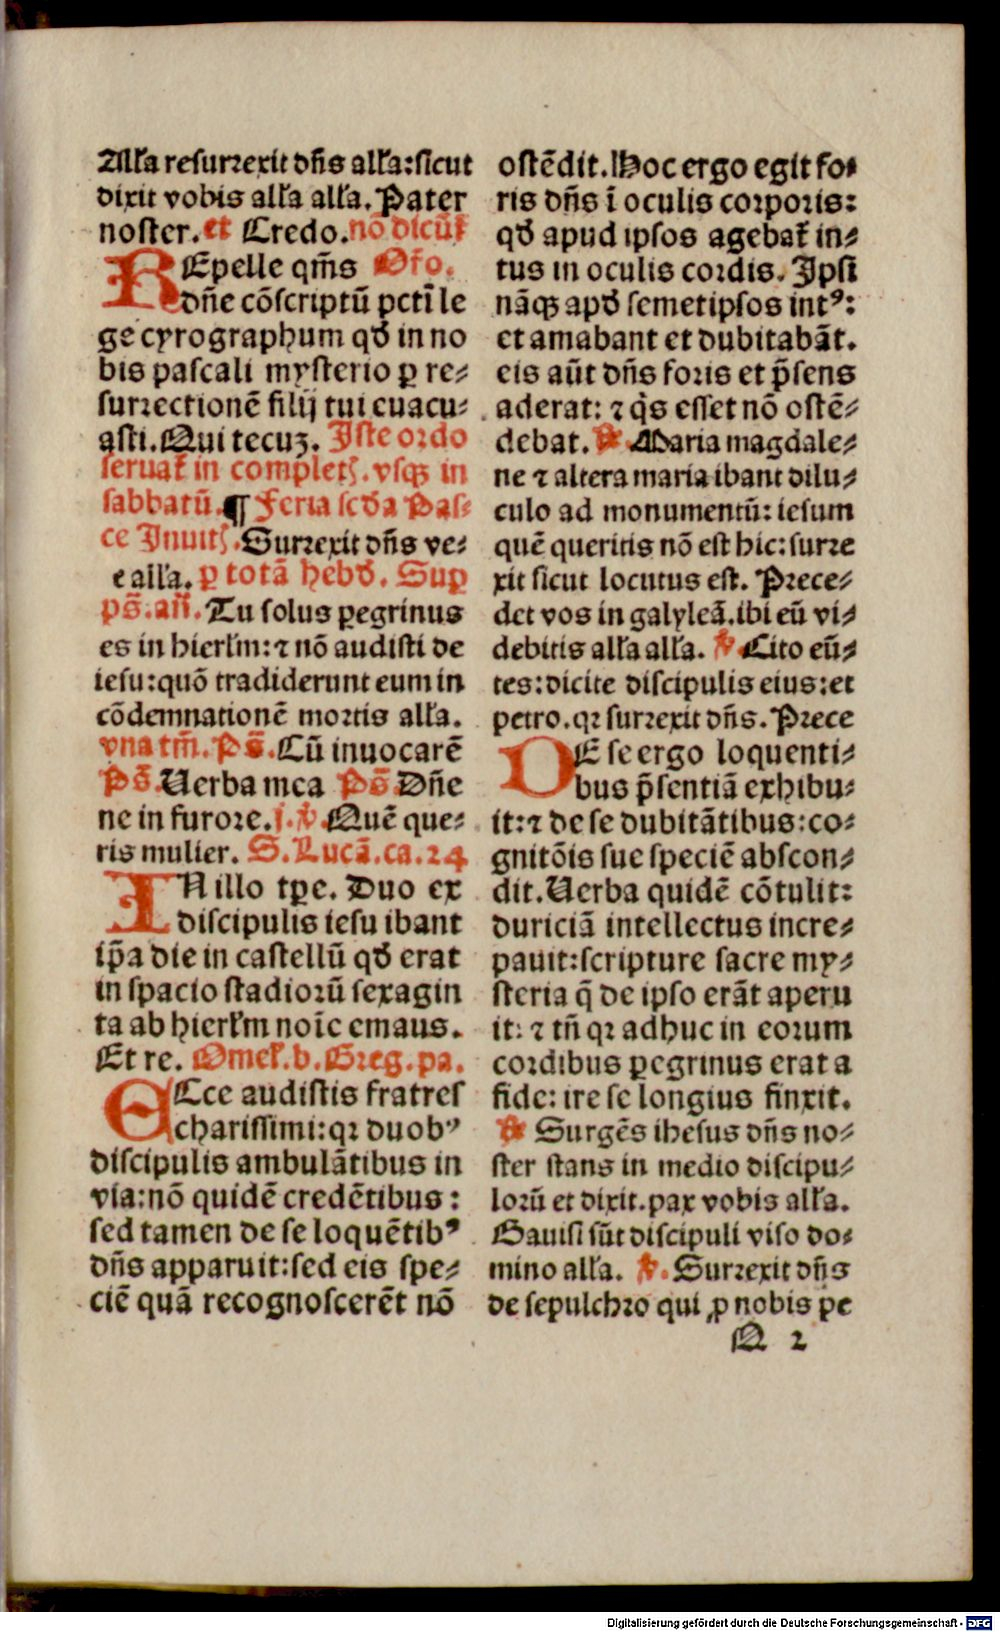 Alľa resurrexit dn̄s alľa: sicut
dixit vobis alľa alľa. Pater
noster. et Credo. nō dicūt̉
REpelle qm̄s Or̄o.
dn̄e cōscriptū pctī le
ge cyrographum qđ in no
bis pascali mysterio ꝑ re-
surrectionē filij tui euacu-
asti. Qui tecuꝫ. Iste ordo
seruat̉ in complet. vsqꝫ in
sabbatū. ¶ Feria scđa Pas-
ce Inuit. Surrexit dn̄s ve-
re alľa. ꝑ totā hebđ. Suꝑ
ps̄. an̄. Tu solus ꝑegrinus
es in hierľm: ⁊ nō audisti de
iesu: quō tradiderunt eum in
cōdemnationē mortis alľa.
vna tm̄. Ps̄. Cū inuocarē
Ps̄. Uerba mea Ps̄. Dn̄e
ne in furore. j. ℣. Quē que-
ris mulier. S. Lucā. ca. 24
IN illo tꝑe. Duo ex
discipulis iesu ibant
ip̄a die in castellū qđ erat
in spacio stadiorū sexagin
ta ab hierľm noīe emaus.
Et re. Omeľ. b. Greg. pa.
ECce audistis fratres
charissimi: qꝛ duobꝰ
discipulis ambulātibus in
via: nō quidē credētibus:
sed tamen de se loquētibꝰ
dn̄s apparuit: sed eis spe-
ciē quā recognoscerēt nō
ostēdit. Hoc ergo egit fo-
ris dn̄s ī oculis corporis:
qđ apud ipsos agebat̉ in-
tus in oculis cordis. Ipsi
nāqꝫ apđ semetipsos intꝰ:
et amabant et dubitabāt.
eis aūt dn̄s foris et p̄sens
aderat: ⁊ q̇s esset nō ostē-
debat. ℟. Maria magdale-
ne ⁊ altera maria ibant dilu-
culo ad monumentū: iesum
quē queritis nō est hic: surre
xit sicut locutus est. Prece-
det vos in galyleā. ibi eū vi-
debitis alľa alľa. ℣. Cito eū-
tes: dicite discipulis eius: et
petro. qꝛ surrexit dn̄s. Prece
DE se ergo loquenti-
bus p̄sentiā exhibu-
it: ⁊ de se dubitātibus: co-
gnitōis sue speciē abscon-
dit. Uerba quidē cōtulit:
duriciā intellectus incre-
pauit: scripture sacre my-
steria q̄ de ipso erāt aperu
it: ⁊ tn̄ qꝛ adhuc in eorum
cordibus ꝑegrinus erat a
fide: ire se longius finxit.
℟ Surgēs ihesus dn̄s no-
ster stans in medio discipu-
lorū et dixit. pax vobis alľa.
Gauisi sūt discipuli viso do-
mino alľa. ℣. Surrexit dn̄s
de sepulchro qui ꝓ nobis pe
Q 2
Digitalisierung gefördert durch die Deutsche Forschungsgemeinschaft - DFG